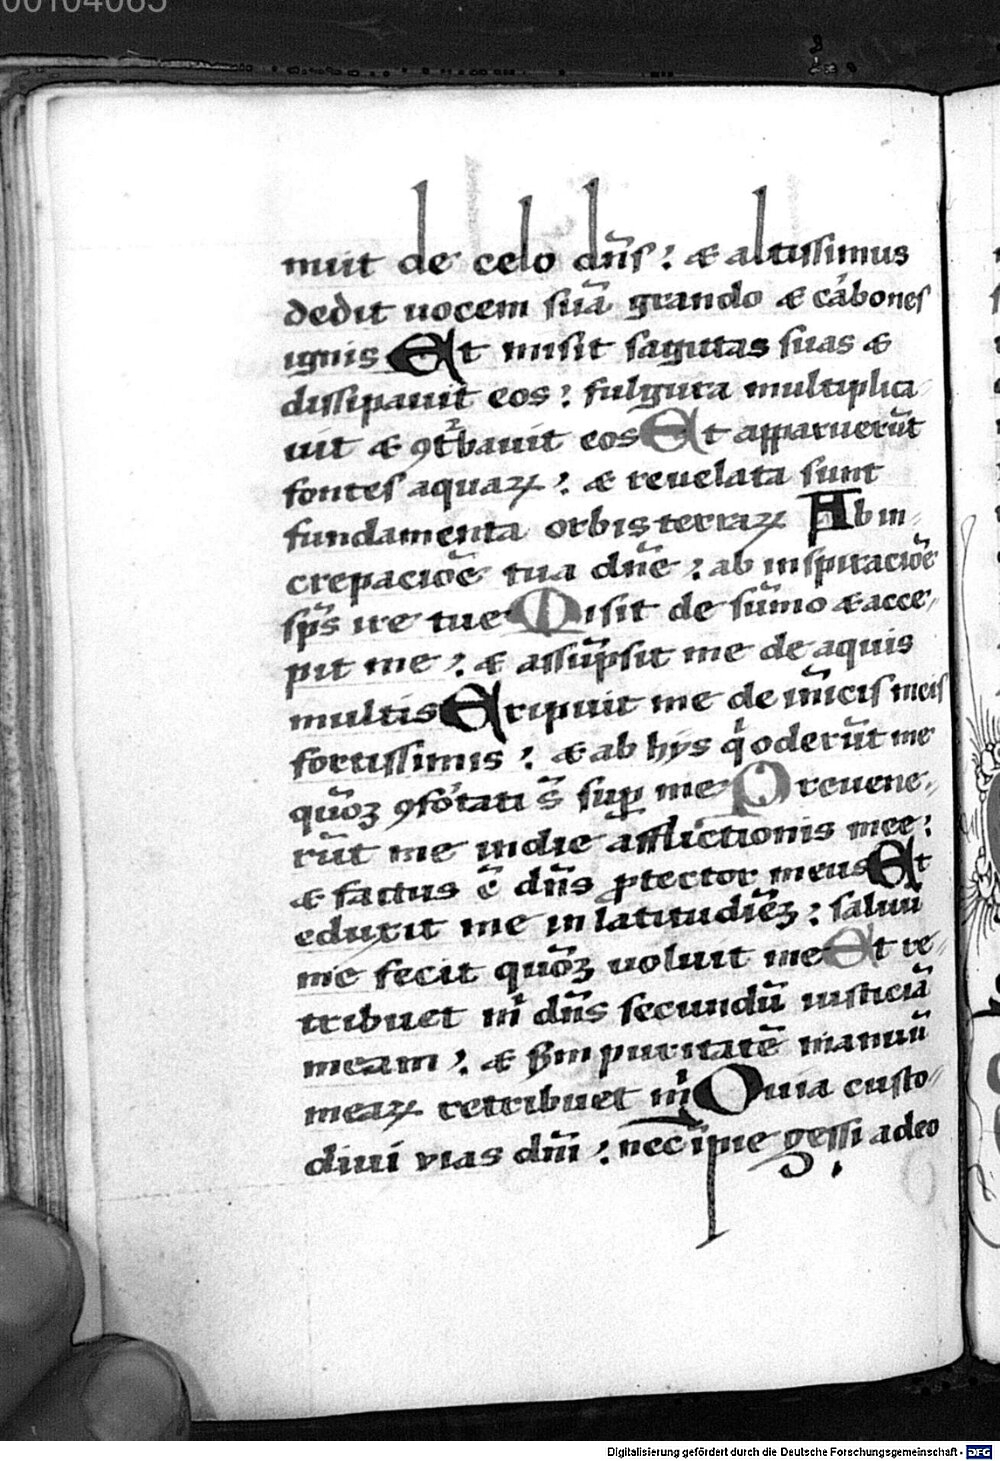 00104065
nuit de celo dn̄s : & altissimus
dedit uocem suā grando & cābones
ignis Et misit sagittas suas &
dissipauit eos : fulgura multiplica-
uit & ꝯt̾bauit eos Et apparuerūt
fontes aquaꝝ : & reuelata sunt
fundamenta orbis terraꝝ Ab in-
crepaciōe tua dn̄e : ab inspiraciōe
sp̄s ire tue Misit de sūmo & acce-
pit me : & assūpsit me de aquis
multis Eripuit me de inīcis meis
fortissimis : & ab hys q̇ oderūt me
quōꝫ ꝯfōtati s̄ sup̱ me Preuene-
rūt me in die afflictionis mee :
& factus ē dn̄s ꝓtector meus Et
eduxit me in latitudiēꝫ : saluū
me fecit quōꝫ uoluit me Et re-
tribuet m̍ dn̄s secundū iusticiā
meam : & sm̄ puritatē manuū
meaꝝ retribuet m̍ Quia custo-
diui vias dn̄i : nec īpie gessi a deo
Digitalisierung gefördert durch die Deutsche Forschungsgemeinschaft - DFG